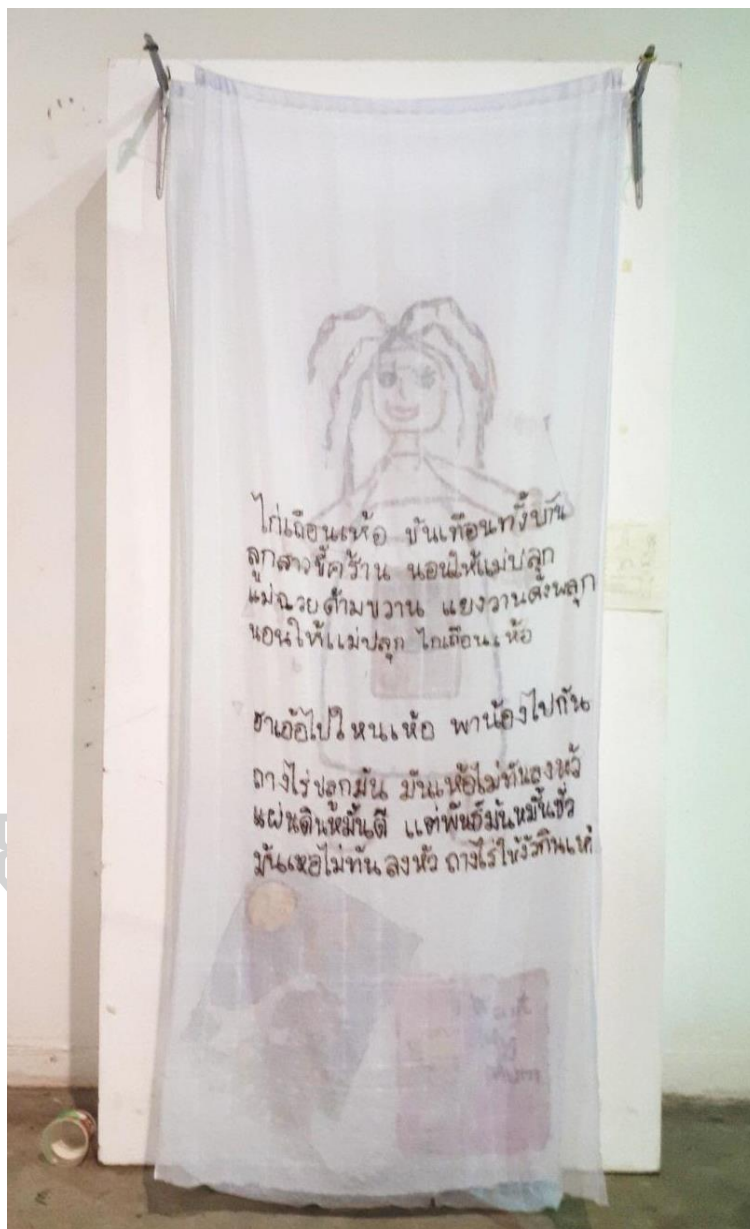 ไก่เถื่อนเห้อ ขันเทือนทั้งบ้าน
ลูกสาวขี้คร้าน นอนให้แม่ปลุก
แม่ฉวยด้ามขวาน แยงวานดังพลุก
นอนให้แม่ปลุก ไกเถื่อนเห้อ
ฮาเอ้อไปใหนเห้อ พาน้องไปกัน
ถางไร่ปลูกมัน มันเห้อไม่ทันลงหัว
แผ่นดินหมั้นดี แต่พันธ์มันหมั้นชั่ว
มันเหอไม่ทันลงหัว ถางไร่ให้วัวกินแห้